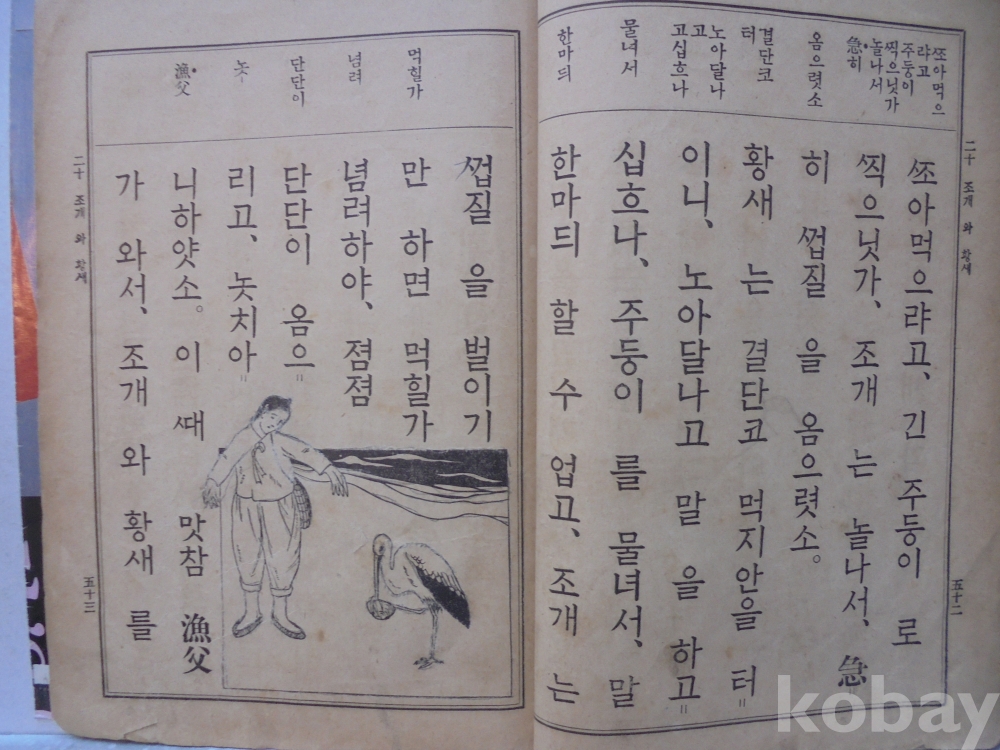 二十 조개 와 황새
五十二
ᄶᅩ아먹으
랴고
주둥이
ᄶᅵᆨ으닛가
놀나서
急히
옴으렷소
결단코
터
노아달나
고
고십흐나
물녀서
한마듸
ᄶᅩ아먹으랴고、긴 주둥이 로
ᄶᅵᆨ으닛가、조개 는 놀나서、急
히 ᄭᅥᆸ질 을 옴으렷소。
황새 는 결단코 먹지안을 터=
이니、노아달나고 말 을 하고=
십흐나、주둥이 를 물녀서、말
한마듸 할 수 업고、조개 는
먹힐가
념려
단단이
놋-
漁父
ᄭᅥᆸ질 을 벌이기
만 하면 먹힐가
념려하야、졈졈
단단이 옴으=
리고、놋치아=
니하얏소。이 ᄯᅢ 맛참 漁父
가 와서、조개 와 황새 를
二十 조개 와 황새
五十三
kobay